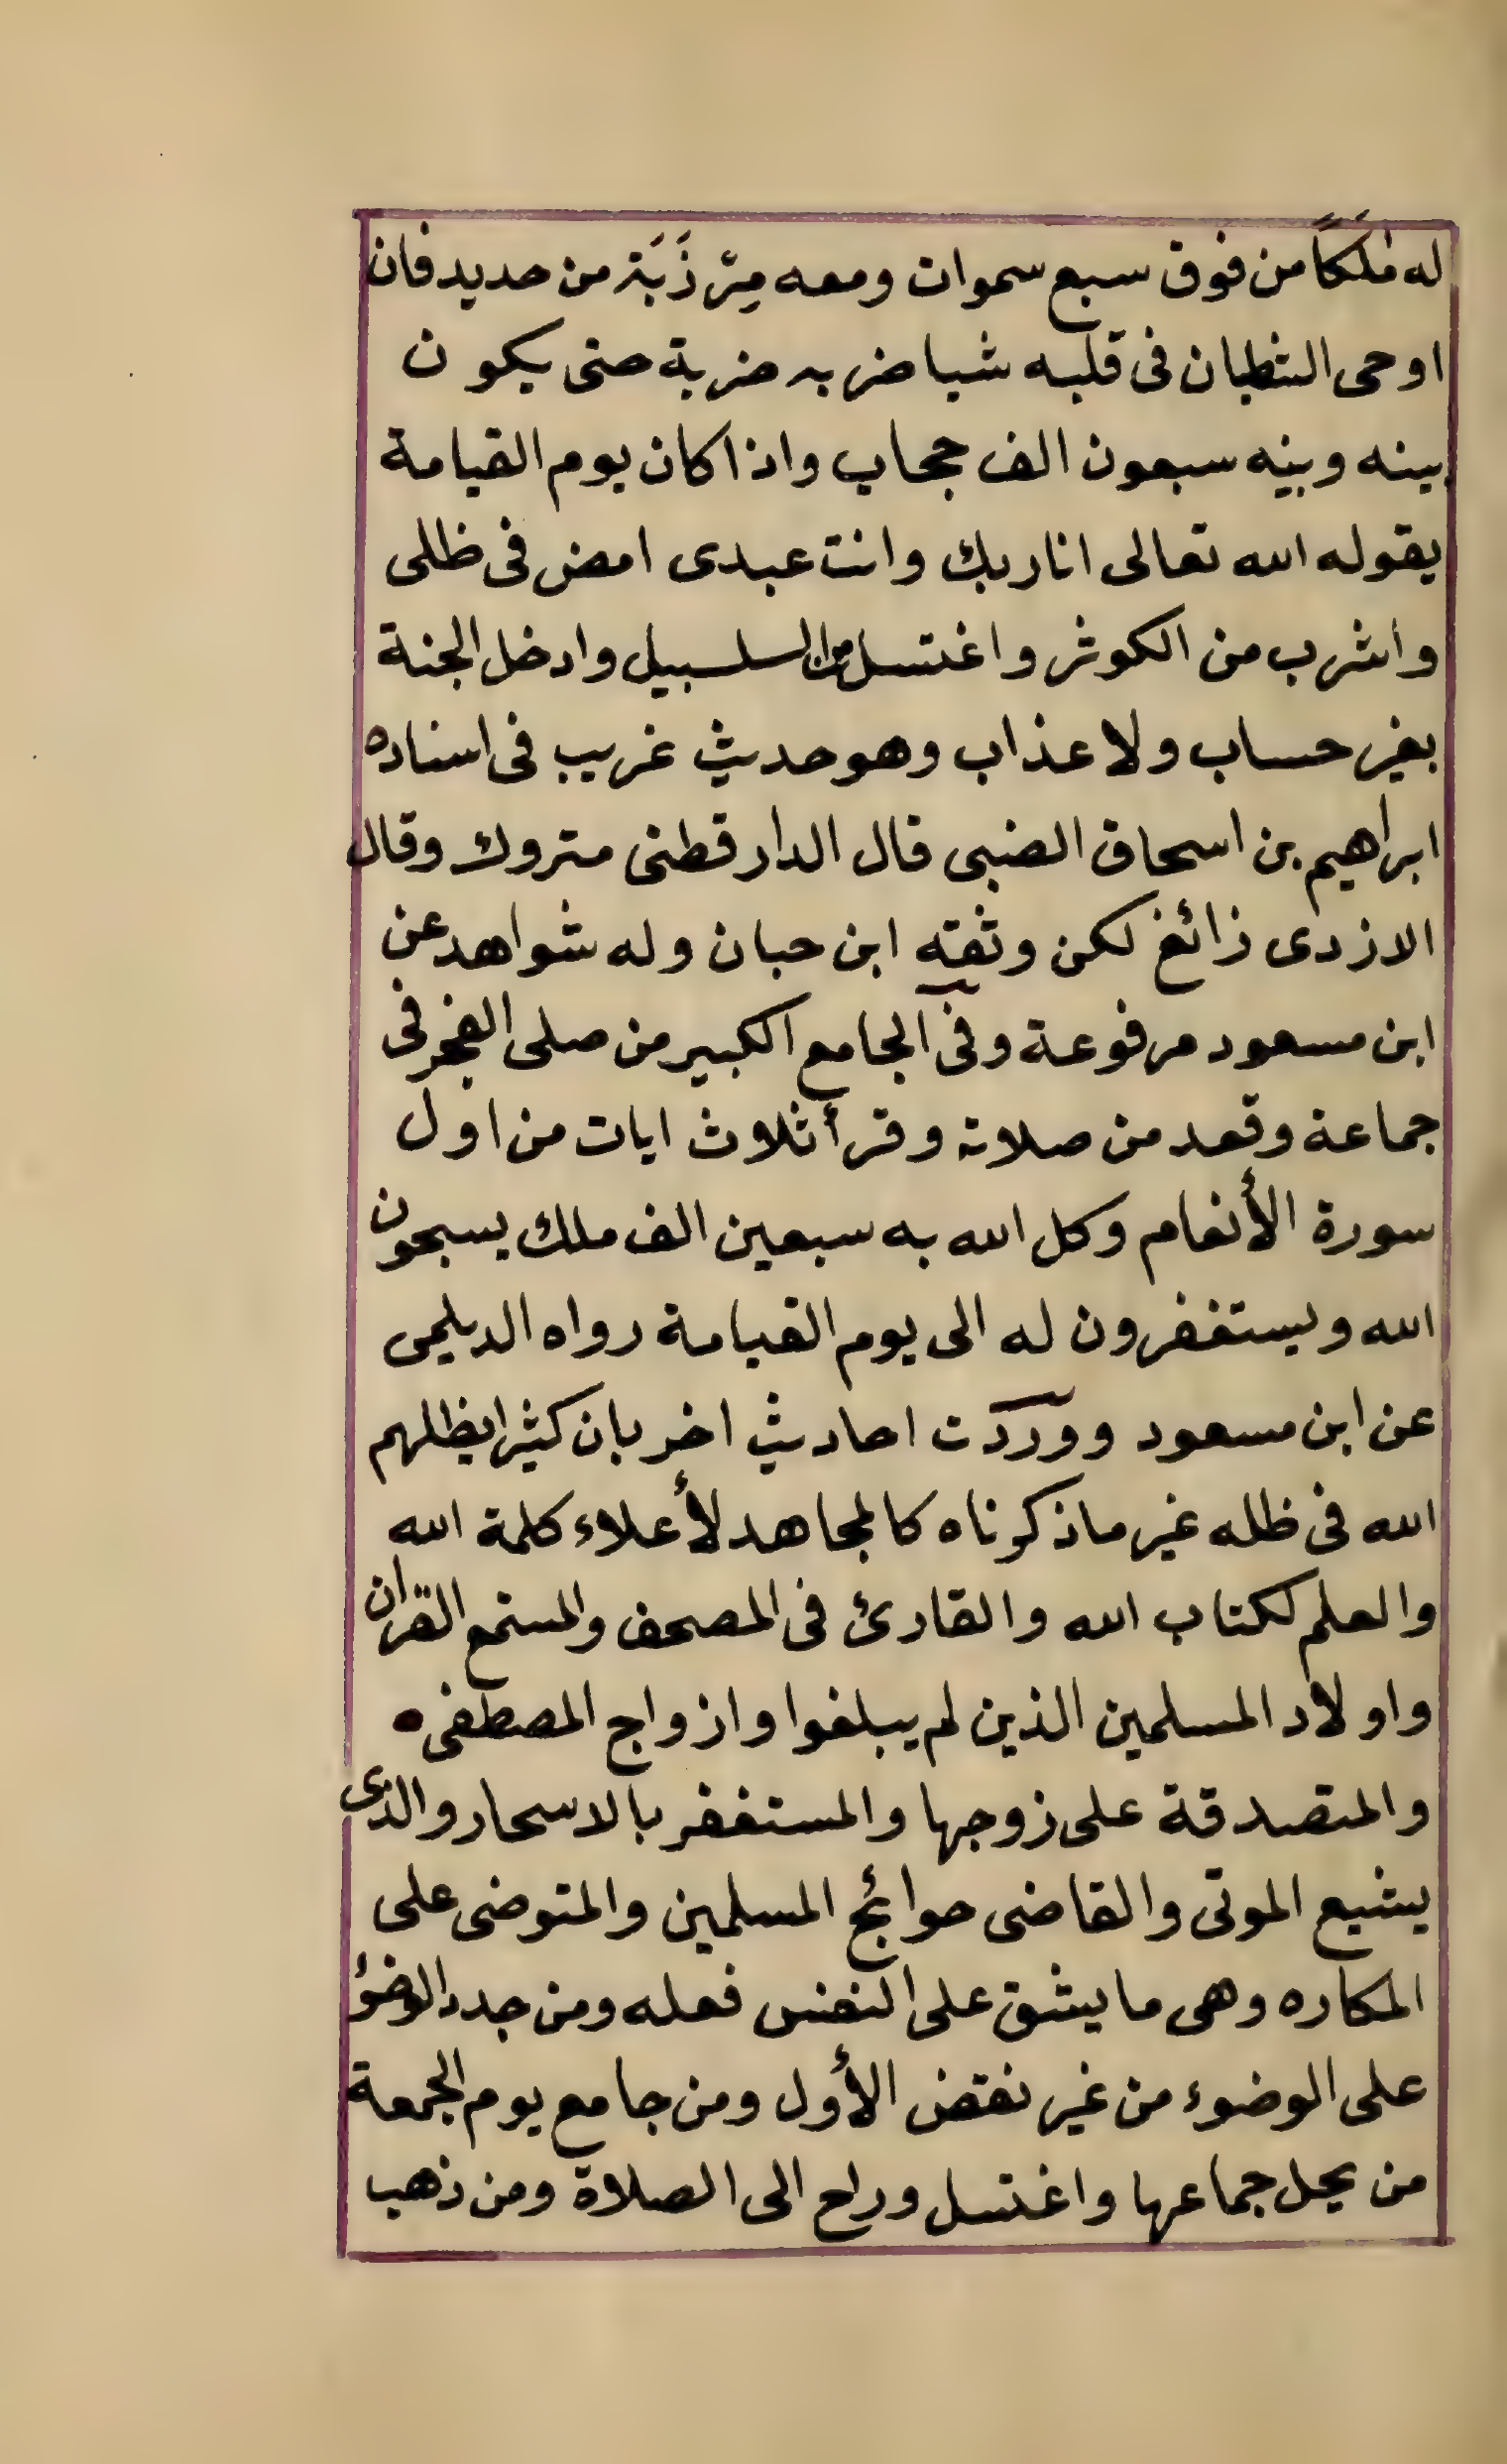 له مَلَكًا من فوق سبع سموات ومعه مِرْزَبَة من حديد فان
اوحى الشيطان فى قلبه شيا ضربه ضربة حتى يكون
بينه وبينه سبعون الف حجاب واذا كان يوم القيامة
يقوله الله تعالى انا ربك وانت عبدى امض فى ظلى
واشرب من الكوثر واغتسل من السلسبيل وادخل الجنة
بغير حساب ولا عذاب وهو حديث غريب فى اسناده
ابراهيم بن اسحاق الضبى قال الدار قطنى متروك وقال
الازدى زائغ لكن وثقه ابن حبان وله شواهد عن
ابن مسعود مرفوعة وفى الجامع الكبير من صلى الفجر فى
جماعة وقعد من صلاته وقرأ ثلاث ايات من اول
سورة الأنعام وكل الله به سبعين الف ملك يسبحون
الله ويستغفرون له الى يوم القيامة رواه الديلمى
عن ابن مسعود ووردت احاديث اخر بان كثيرا يظلهم
الله فى ظله غير ما ذكرناه كالمجاهد لأعلاء كلمة الله
والعلم لكتاب الله والقارئ فى المصحف والمستمع القران
واولاد المسلمين الذين لم يبلغوا وازواج المصطفى
والمتصدقة على زوجها والمستغفر بالاسحار والذى
يشيع الموتى والقاضى حوائج المسلمين والمتوضى على
المكاره وهى ما يشق على النفس فعله ومن جدد الوضؤ
على الوضوء من غير نقض الأول ومن جامع يوم الجمعة
من يحل جماعها واغتسل وراح الى الصلاة ومن ذهب